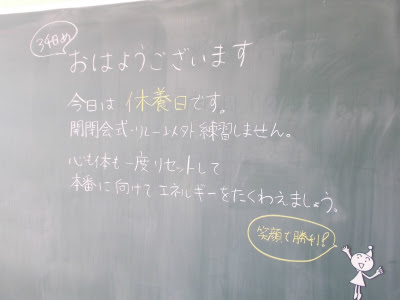 34日め
おはようございます
今日は休養日です。
開閉会式・リレー以外練習しません。
心も体も一度リセットして
本番に向けてエネルギーをたくわえましょう。
笑顔で勝利!